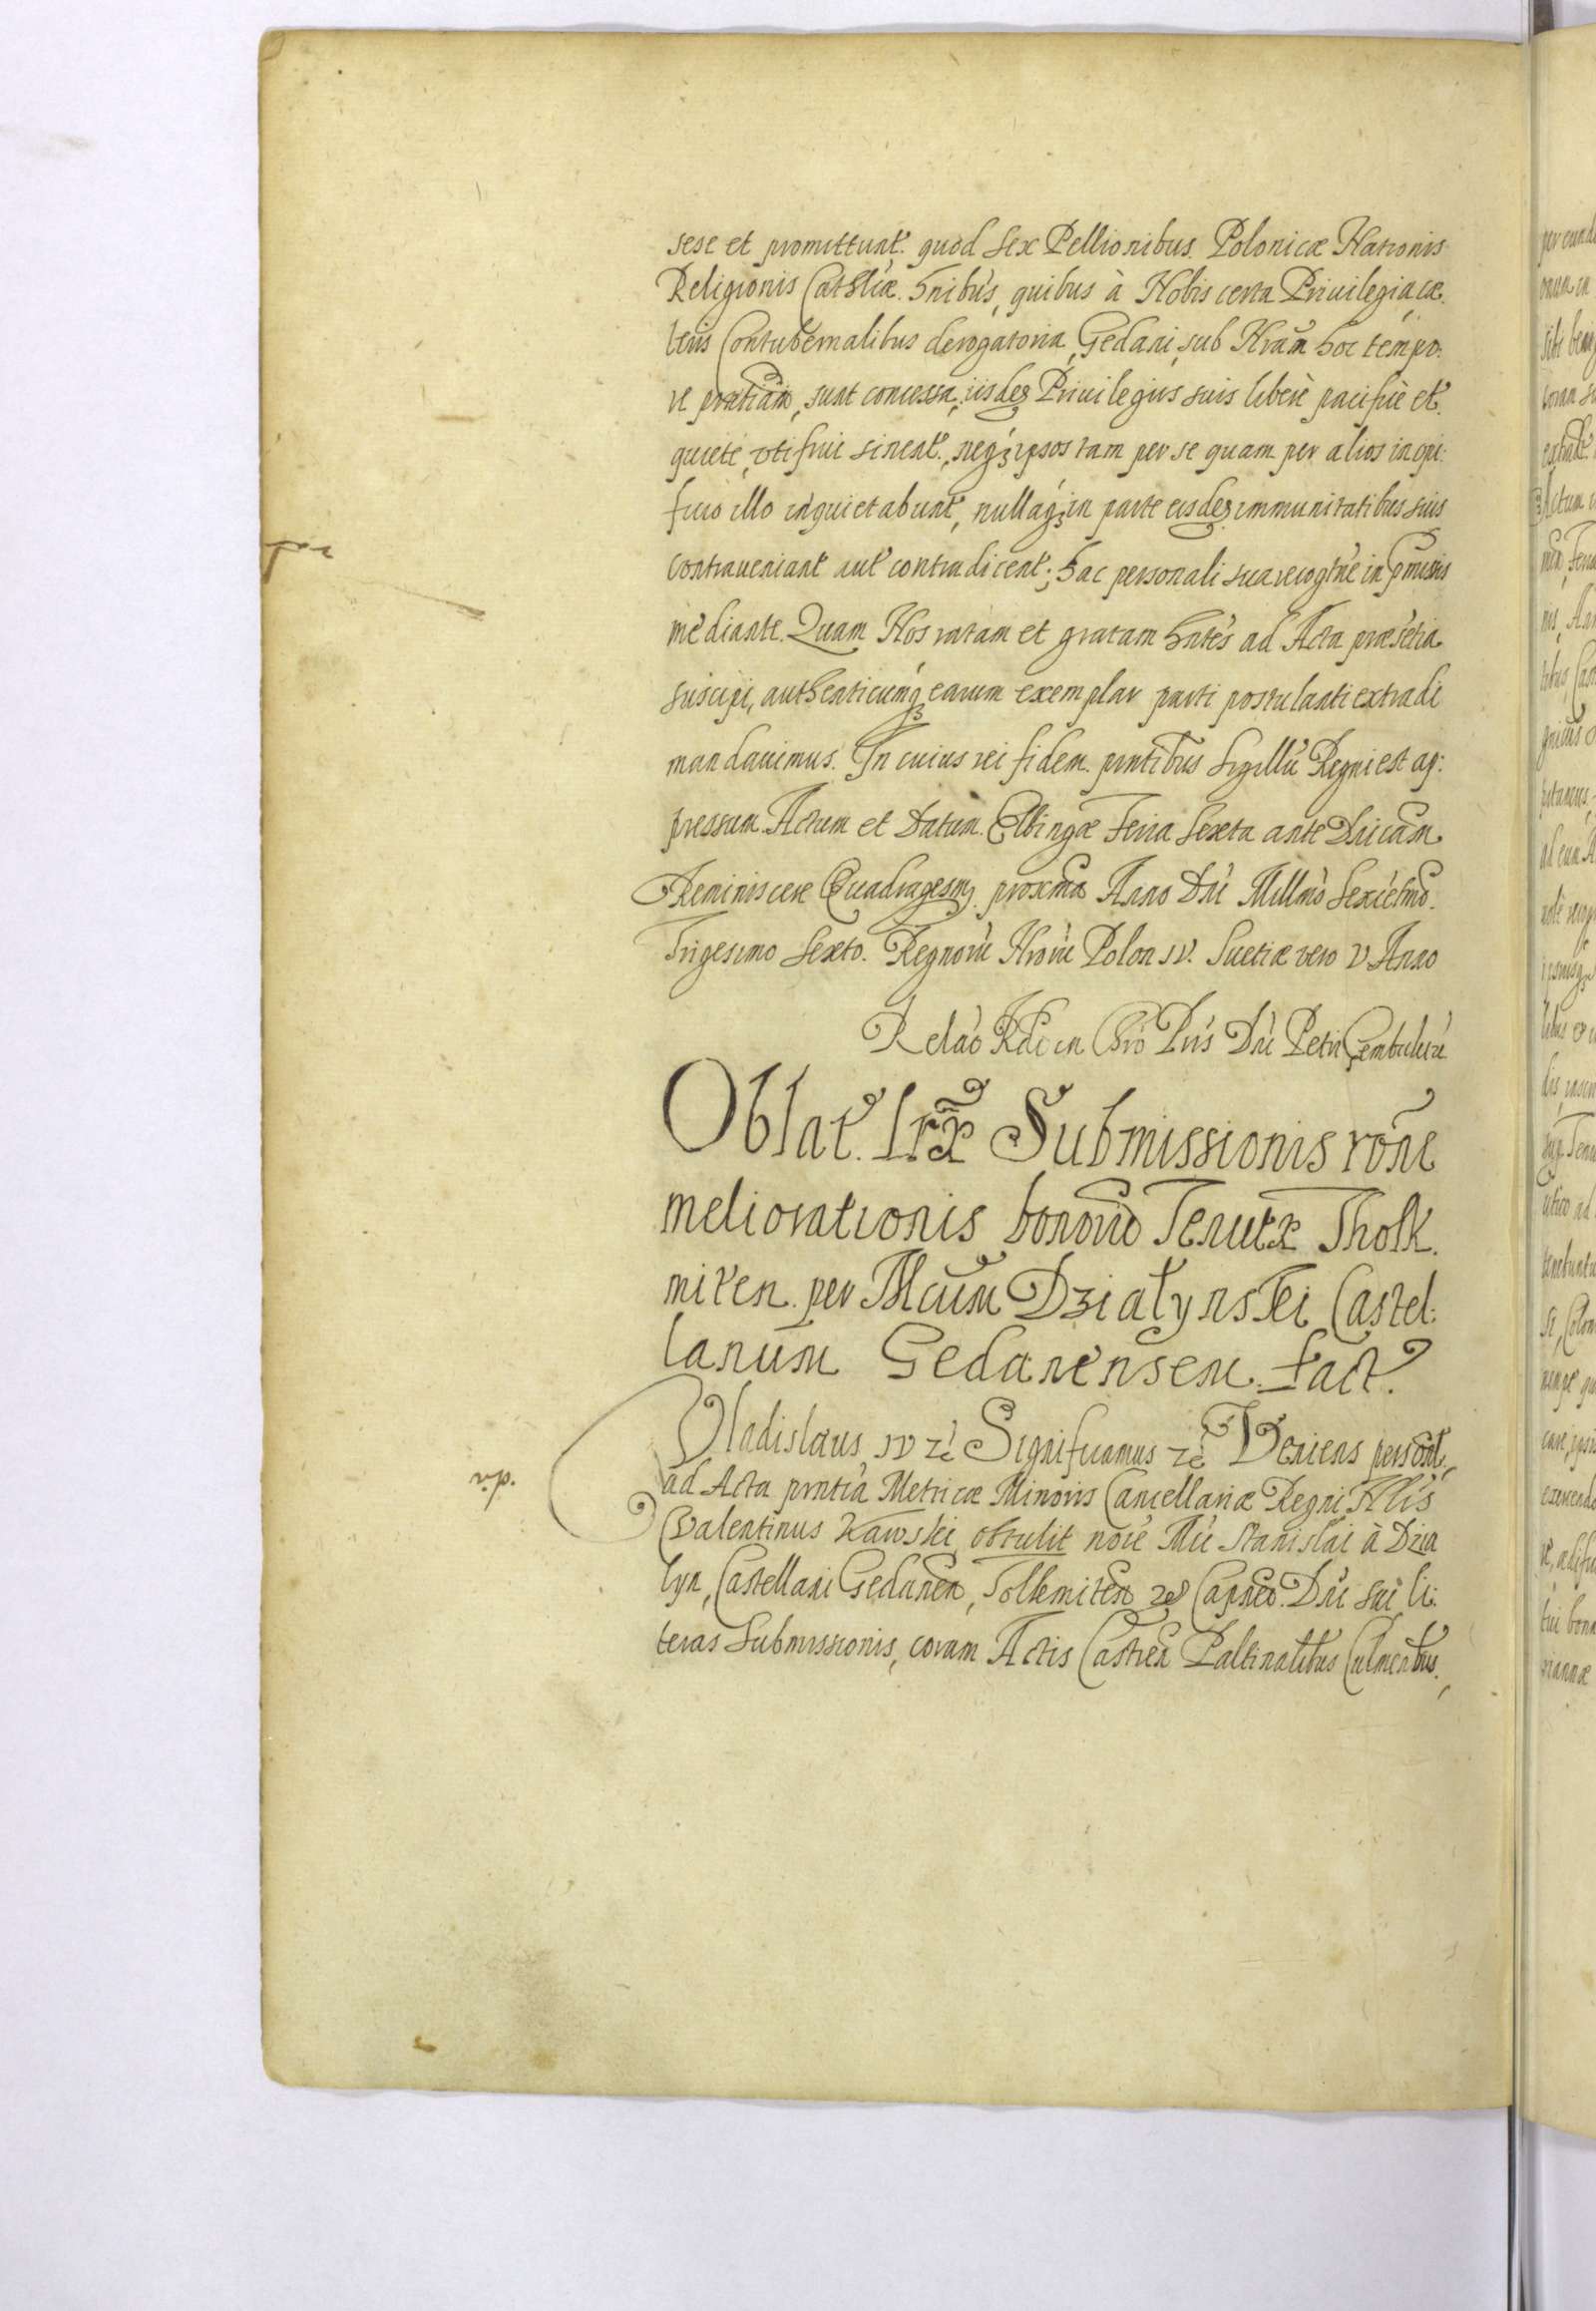 sese et promittunt. quòd sex Pellionibus. Polonicæ Nationis
Religionis Cathlicæ. hntibus, quibus à Nobis certa Priuilegia, cæ.
teris Contubernalibus derogatoria, Gedani, sub Nram hoc tempo:
re prntiam, sunt concessa, iisdeз Priuilegiis suis liberè pacificè et
quietè, vti frui sinent, neqз ipsos tam per se quam per alios in opi:
ficio illo inquietabunt, nullaqз in parte eisdeз immunitatibus suis
contraueniant aut contradicent; hac personali sua recogtne in pmissis
mediante. Quam Nos ratam et gratam hntes ad Acta præsetia
suscipi, authenticumqз earum exemplar parti postulanti extradi
mandauimus. In cuius rei fidem. pntibus Sigillũ Regni est ap:
pressum. Actum et Datum. Elbingæ Feria Sexta ante Dnicam
Reminiscere Quadragesim. proxma Anno Dni Millmo Sexcetmo.
Trigesimo Sexto. Regnorũ Nrorũ Polon IV. Suetiæ vero V Anno
Relao Rdi in Chro Pris Dni Petri Gembicki
Oblat. Lræ Submissionis rõne
meliorationis bonorũ Tenutæ Tholk.
miten. per Mcum Dzialynski Castel:
lanum Gedanensem. fact.
Vladislaus IV zc Significamus zc Veniens personl,
ad Acta prntia Metricæ Minoris Cancellariæ Regni Nlis
Valentinus Kawski obtulit noie Mci Stanislai à Dzia
lyn, Castellani Gedanen, Tolkemiten zc Capnei. Dni sui li:
teras Submissionis, coram Actis Castren Paltinalibus Culmenbus,